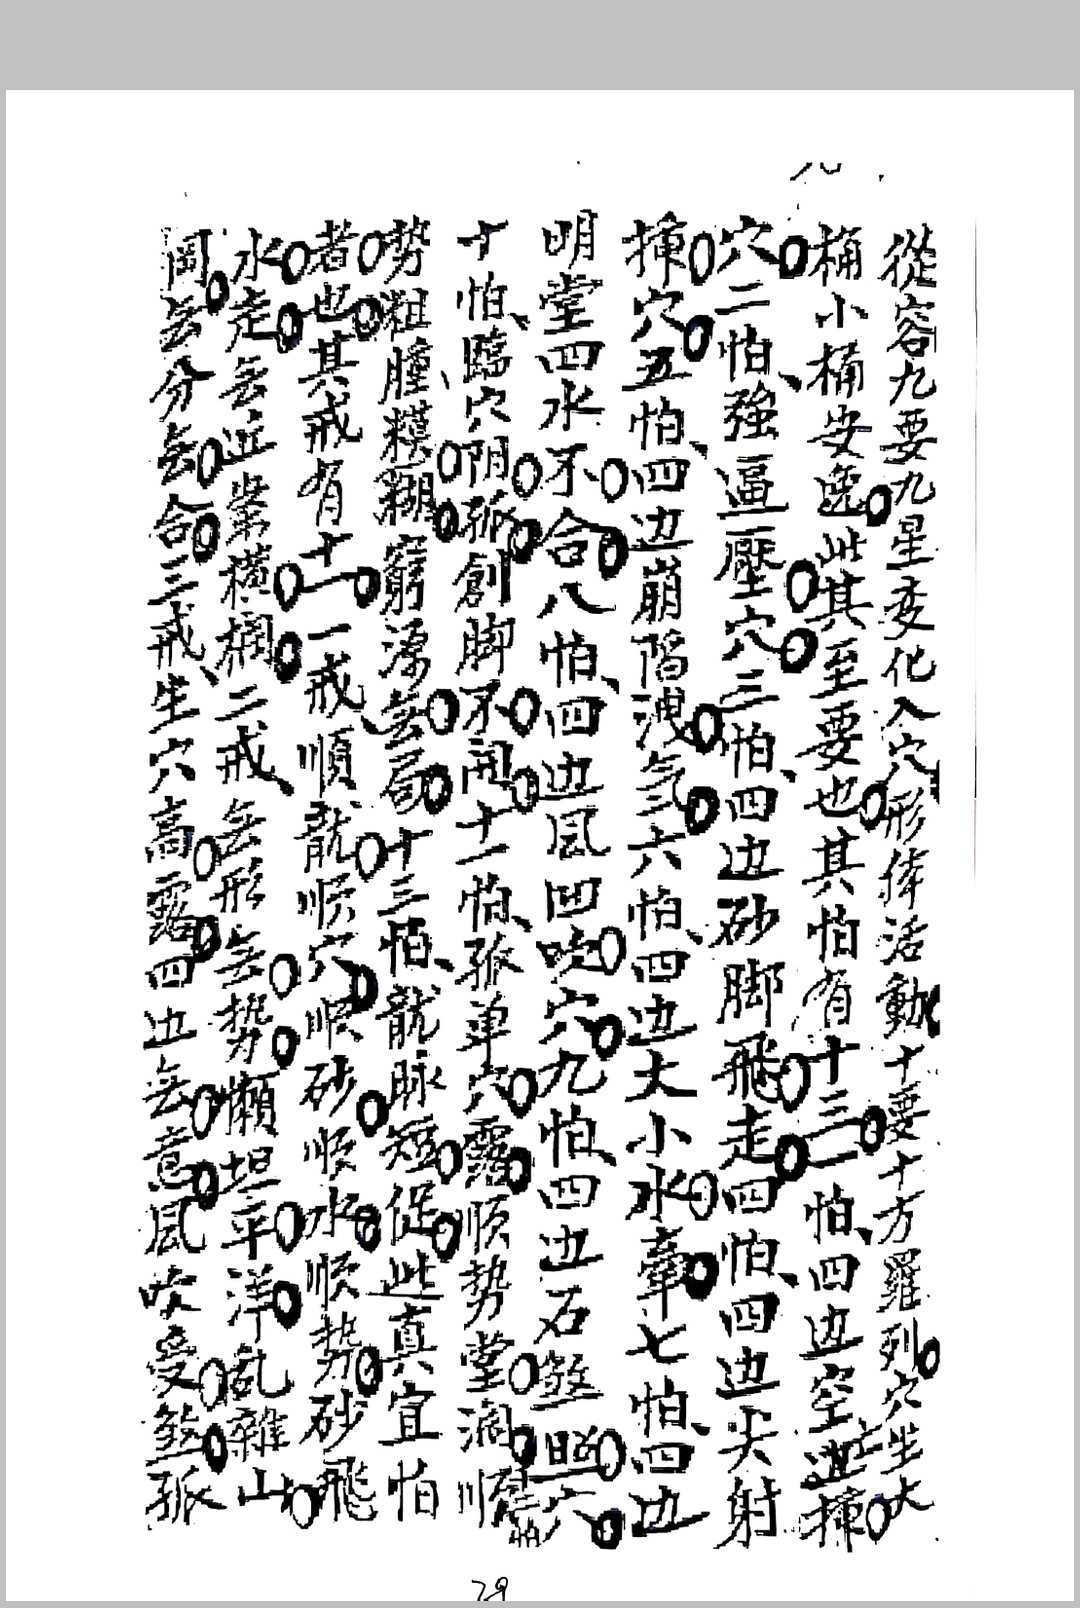 從容九要九星变化入穴形俸活動十要十方羅列穴生大
桶小桶安逸此其至要也其怕有十三一怕四边空亡边㨋
穴二怕強逼壓穴三怕四边砂脚飛走四怕四边尖射
㨋穴五怕四边崩陷洩气六怕四边大小水牽七怕四边
明堂四水不合八怕四边風凹吹穴九怕四边石煞照穴
十怕臨穴阴孤創脚不開十一怕孤单穴露順势堂濶順是十二怕
势粗腫糢糊窮源无局十三怕龍脉短促此真宜怕
者也其戒有十一一戒順龍順穴順砂順水順势砂飛
水走无近案横欄二戒无形无势懶坦平洋乱雜山
岡无分无合三戒生穴高露四边无意風吹受煞孤
29